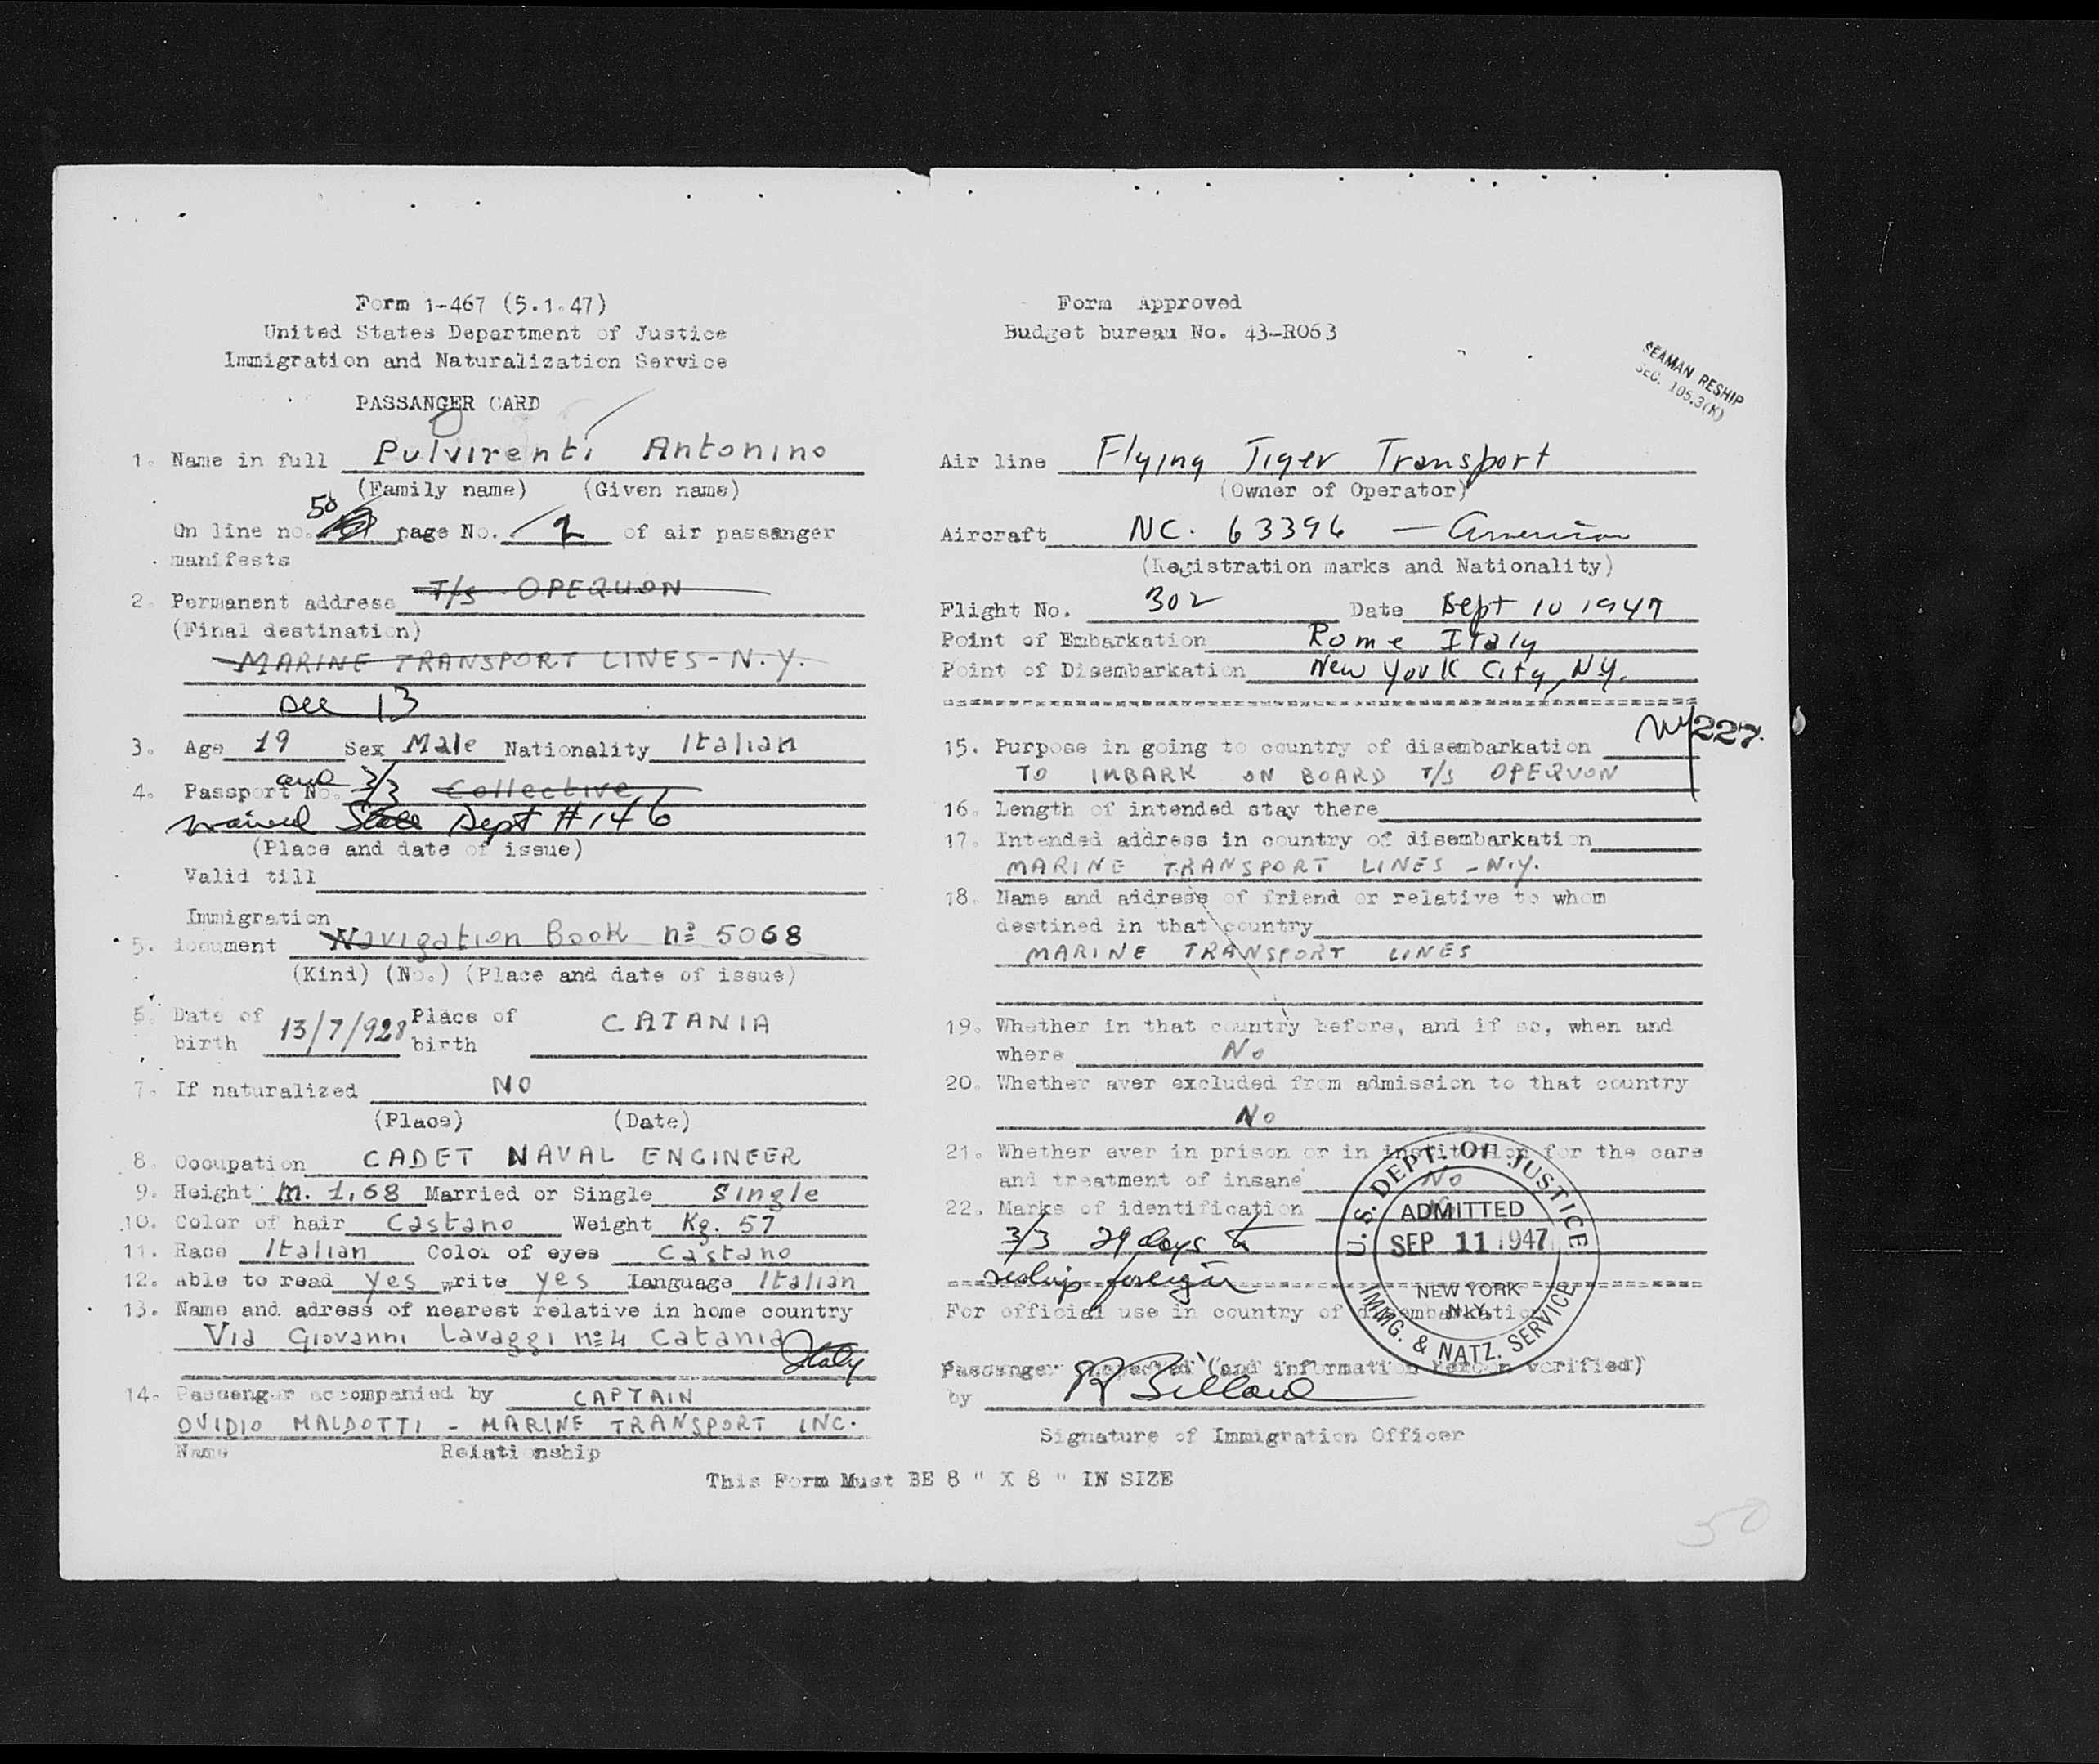 Form 1-467 (5.1.47)
United States Department of Justice
Immigration and Naturalization Service
PASSANGER CARD
1. Name in full Pulvirenti Antonino
(Family name) (Given name)
50
On line no. page No. 2 of air passanger
manifests
2. Permanent address T/S OPEQUON
(Final destination)
MARINE TRANSPORT LINES - N.Y.
see 13
3. Age 19 Sex Male Nationality Italian
4. Passport No. and 3/3 Collective
waived State Dept # 146
(Place and date of issue)
Valid till
Immigration
5. document Navigation Book nº 5068
(Kind) (No.) (Place and date of issue)
6. Date of birth 13/7/928 Place of birth CATANIA
7. If naturalized NO
(Place) (Date)
8. Occupation CADET NAVAL ENGINEER
9. Height m. 1,68 Married or Single Single
10. Color of hair Castano Weight Kg. 57
11. Race Italian Color of eyes Castano
12. Able to read yes write yes Language Italian
13. Name and adress of nearest relative in home country
Via Giovanni Lavaggi nº 4 Catania
Italy
14. Passenger accompanied by CAPTAIN
OVIDIO MALDOTTI - MARINE TRANSPORT INC.
Name Relationship
Form Approved
Budget bureau No. 43-R063
SEAMAN RESHIP
SEC. 105.3(K)
Air line Flying Tiger Transport
(Owner of Operator)
Aircraft NC. 63396 - American
(Registration marks and Nationality)
Flight No. 302 Date Sept 10 1947
Point of Embarkation Rome Italy
Point of Disembarkation New York City, NY.
15. Purpose in going to country of disembarkation
TO IMBARK ON BOARD T/S OPEQUON
16. Length of intended stay there
17. Intended address in country of disembarkation
MARINE TRANSPORT LINES - N.Y.
18. Name and address of friend or relative to whom
destined in that country
MARINE TRANSPORT LINES
19. Whether in that country before, and if so, when and
where No
20. Whether aver excluded from admission to that country
No
21. Whether ever in prison or in institution for the care
and treatment of insane No
22. Marks of identification
3/3 29 days to
reship foreign
U.S. DEPT. OF JUSTICE
ADMITTED
SEP 11 1947
NEW YORK
N.Y.
IMMG. & NATZ. SERVICE
For official use in country of disembarkation
Passenger inspected (and information hereon verified)
by
Signature of Immigration Officer
This Form Must BE 8 " X 8 " IN SIZE
50